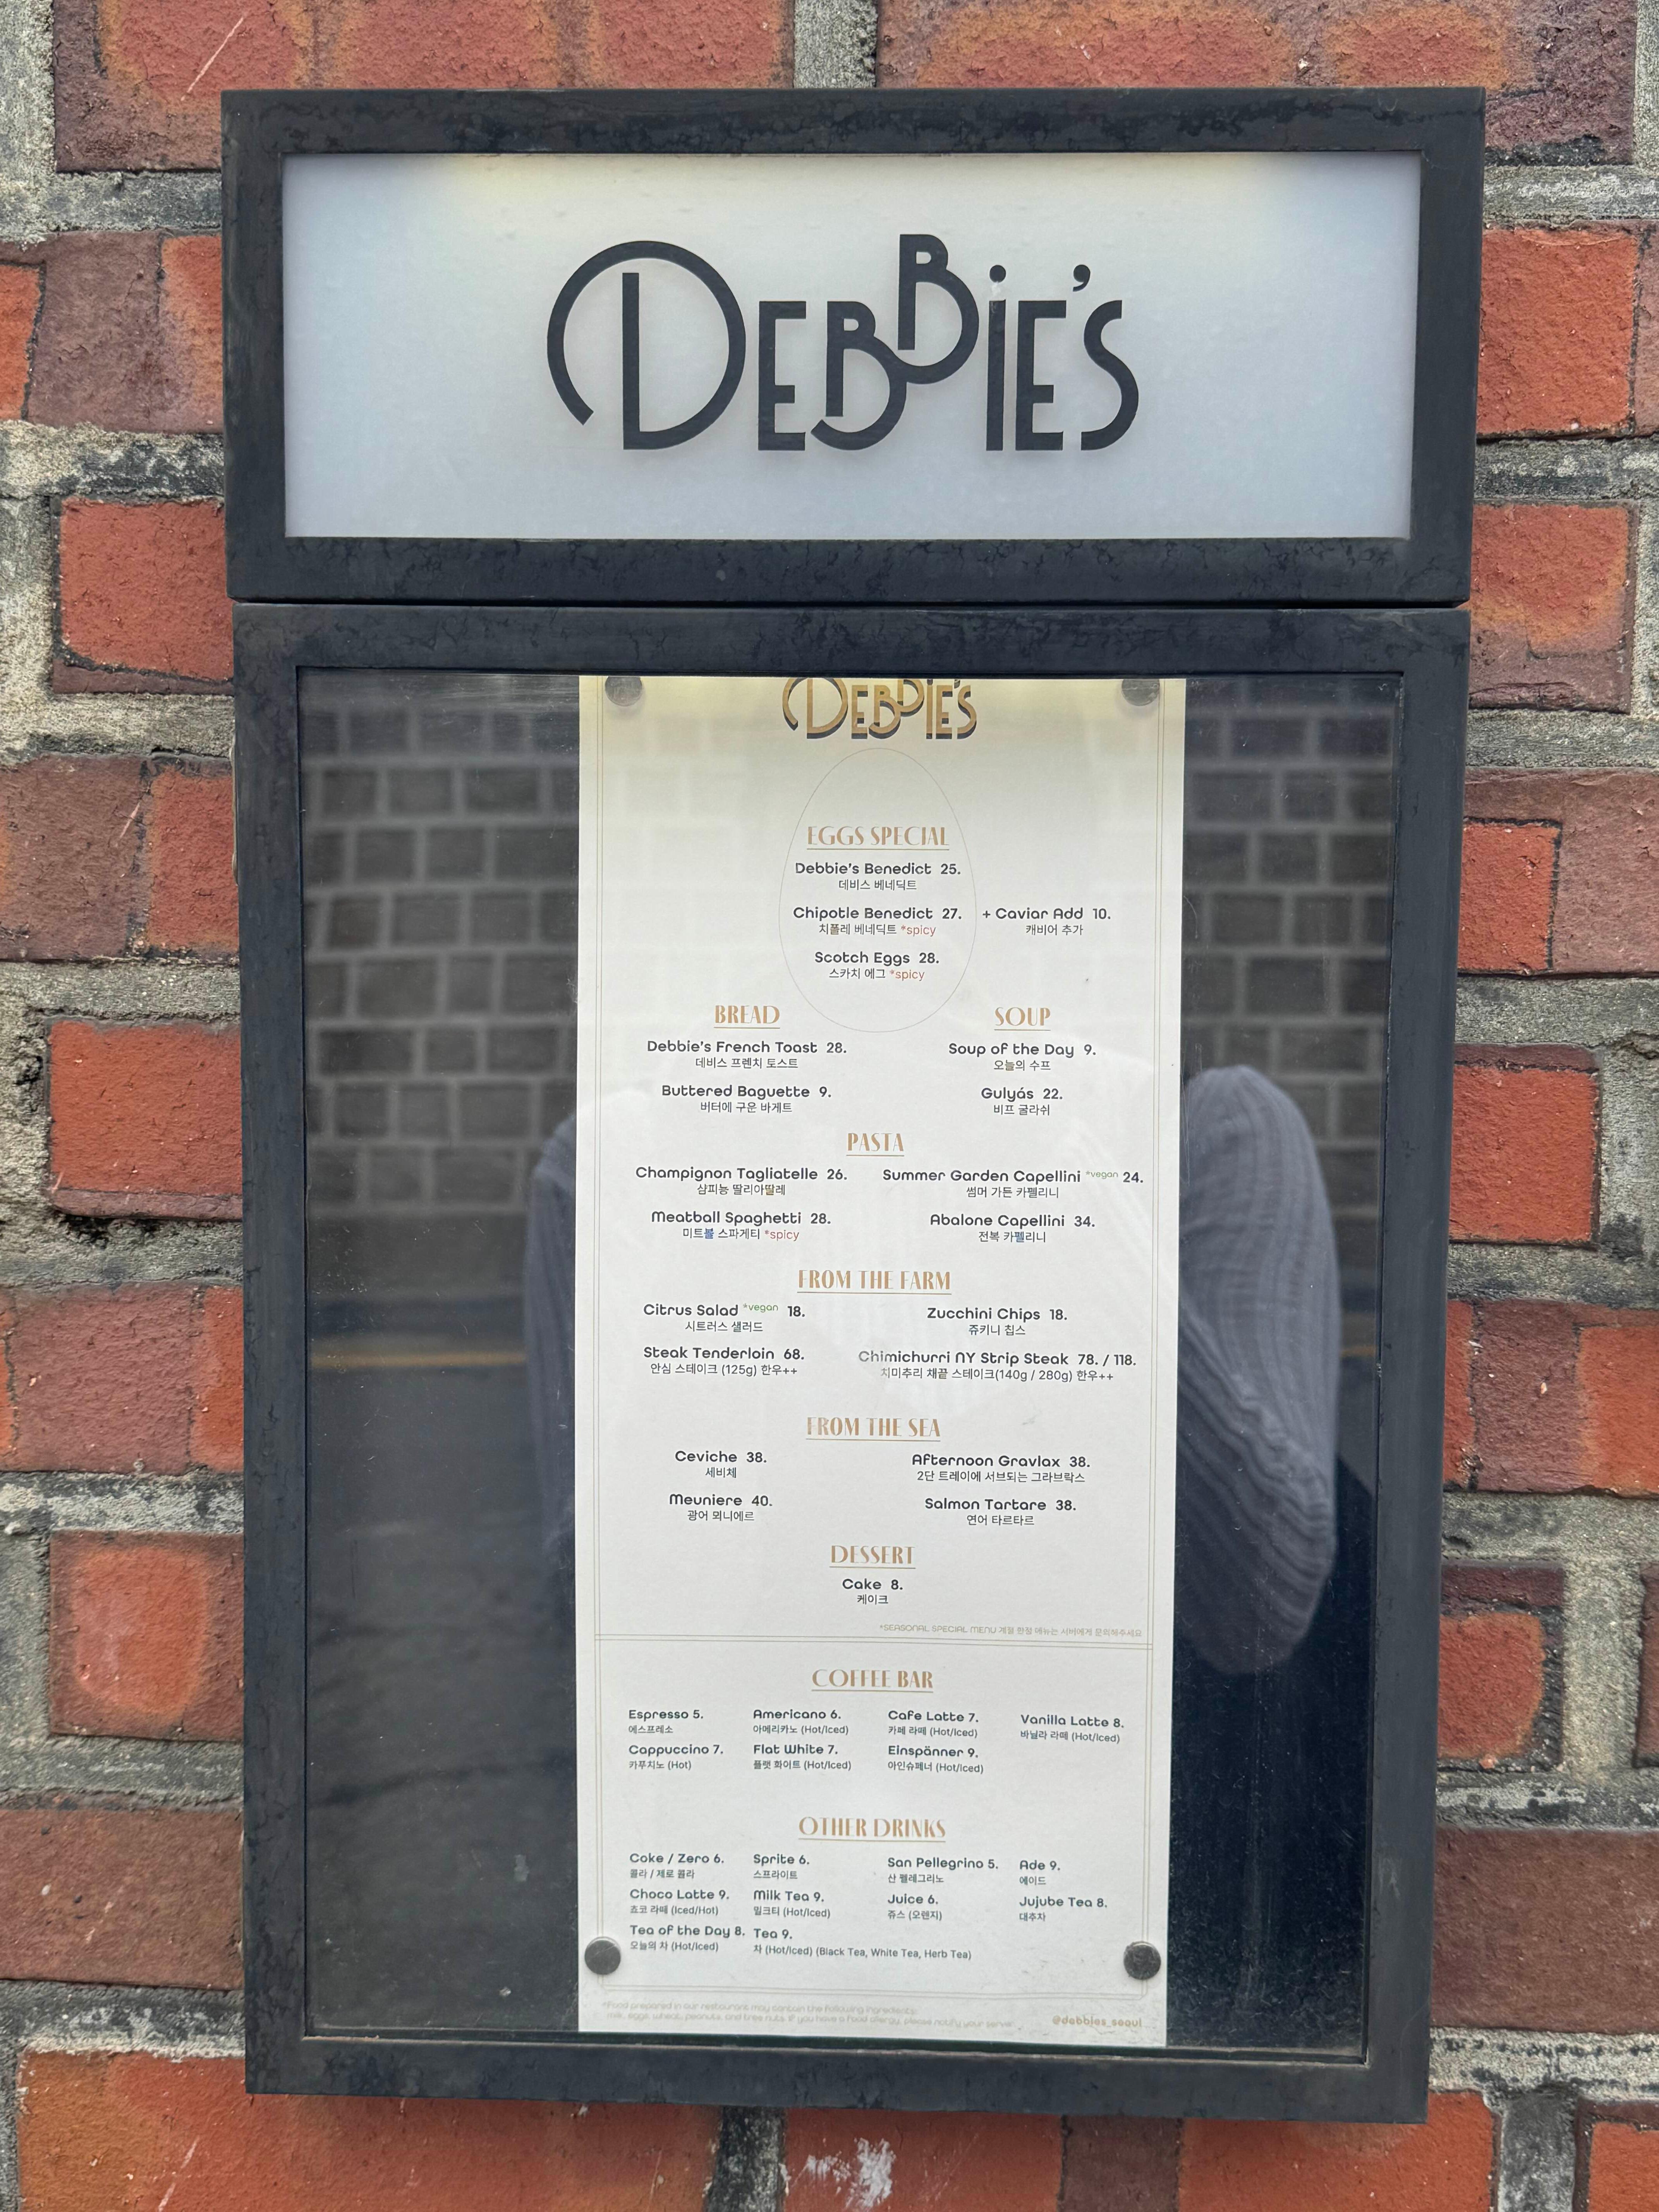 DEBBIE'S
DEBBIE'S
EGGS SPECIAL
Debbie's Benedict 25.
데비스 베네딕트
Chipotle Benedict 27. + Caviar Add 10.
치폴레 베네딕트 *spicy 캐비어 추가
Scotch Eggs 28.
스카치 에그 *spicy
BREAD
Debbie's French Toast 28.
데비스 프렌치 토스트
Buttered Baguette 9.
버터에 구운 바게트
SOUP
Soup of the Day 9.
오늘의 수프
Gulyás 22.
비프 굴라쉬
PASTA
Champignon Tagliatelle 26.
샴피뇽 딸리아딸레
Meatball Spaghetti 28.
미트볼 스파게티 *spicy
Summer Garden Capellini *vegan 24.
썸머 가든 카펠리니
Abalone Capellini 34.
전복 카펠리니
FROM THE FARM
Citrus Salad *vegan 18.
시트러스 샐러드
Steak Tenderloin 68.
안심 스테이크 (125g) 한우++
Zucchini Chips 18.
쥬키니 칩스
Chimichurri NY Strip Steak 78. / 118.
치미추리 채끝 스테이크(140g / 280g) 한우++
FROM THE SEA
Ceviche 38.
세비체
Meuniere 40.
광어 뫼니에르
Afternoon Gravlax 38.
2단 트레이에 서브되는 그라브락스
Salmon Tartare 38.
연어 타르타르
DESSERT
Cake 8.
케이크
*SEASONAL SPECIAL MENU 계절 한정 메뉴는 서버에게 문의해주세요
COFFEE BAR
Espresso 5.
에스프레소
Americano 6.
아메리카노 (Hot/Iced)
Cafe Latte 7.
카페 라떼 (Hot/Iced)
Vanilla Latte 8.
바닐라 라떼 (Hot/Iced)
Cappuccino 7.
카푸치노 (Hot)
Flat White 7.
플랫 화이트 (Hot/Iced)
Einspänner 9.
아인슈페너 (Hot/Iced)
OTHER DRINKS
Coke / Zero 6.
콜라 / 제로 콜라
Sprite 6.
스프라이트
San Pellegrino 5.
산 펠레그리노
Ade 9.
에이드
Choco Latte 9.
쵸코 라떼 (Iced/Hot)
Milk Tea 9.
밀크티 (Hot/Iced)
Juice 6.
쥬스 (오렌지)
Jujube Tea 8.
대추차
Tea of the Day 8.
오늘의 차 (Hot/Iced)
Tea 9.
차 (Hot/Iced) (Black Tea, White Tea, Herb Tea)
*Food prepared in our restaurant may contain the following ingredients:
milk, eggs, wheat, peanuts, and tree nuts. If you have a food allergy, please notify your server
@debbies_seoul